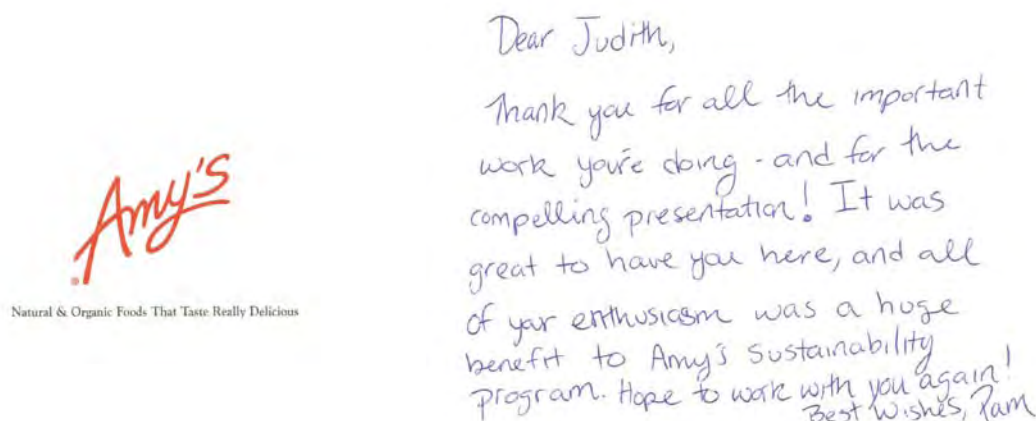 Amy's
®
Natural & Organic Foods That Taste Really Delicious
Dear Judith,
Thank you for all the important
work you're doing - and for the
compelling presentation! It was
great to have you here, and all
of your enthusiasm was a huge
benefit to Amy's Sustainability
program. Hope to work with you again!
Best Wishes, Pam